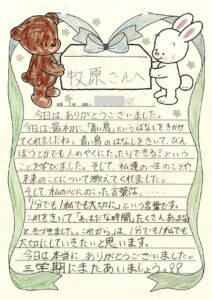 牧原さんへ
今日は、ありがとうございました。
今日は、最初に「青い鳥」というはなしをきかせ
てくれましたね。青い鳥のはなしをきいて、びん
ぼうとかでも人のやくにたったりできる？という
ことを学びました。そして、私達の一生のことや
未来のことについて教えてくれました。
そして、私の心にのこった言葉は、
「1分でも1秒でも大切に」という言葉です。
これをきいて、「あ、まだな時間」たくさんあるな
と、きづきました。これからは、1分でも1秒でも
大切にしていきたいと思います。
今日は本当に、ありがとうございました。
三学期にまたあいましょう。